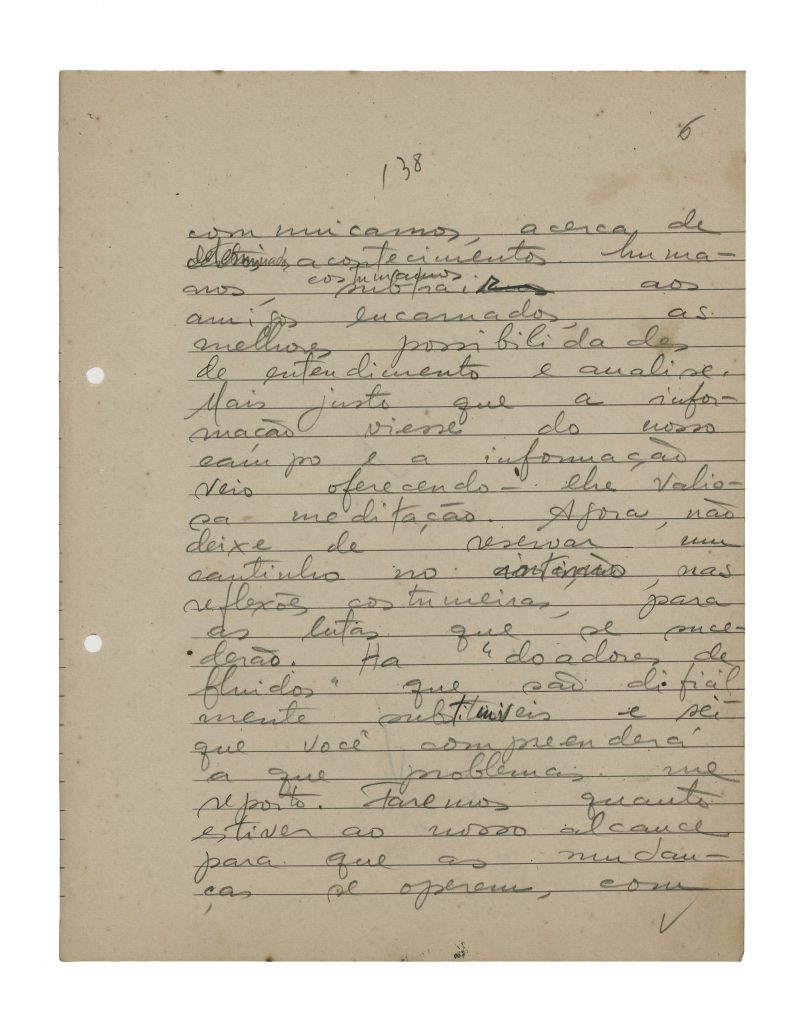 6
138
communicamos, acerca de
determinados acontecimentos huma-
costumamos
nos, subtrair aos
amigos encarnados, as
melhores possibilidades
de entendimento e analise.
Mais justo que a infor-
mação viesse do nosso
campo e a informação
veio oferecendo-lhe valio-
sa meditação. Agora, não
deixe de reservar um
cantinho no intimo, nas
reflexões costumeiras, para
as lutas que se suce-
derão. Ha "doadores de
fluidos" que são dificil
mente substituiveis e sei
que você compreenderá
a que problemas me
reporto. Faremos quanto
estiver ao nosso alcance
para que as mudan-
ças se operem, com